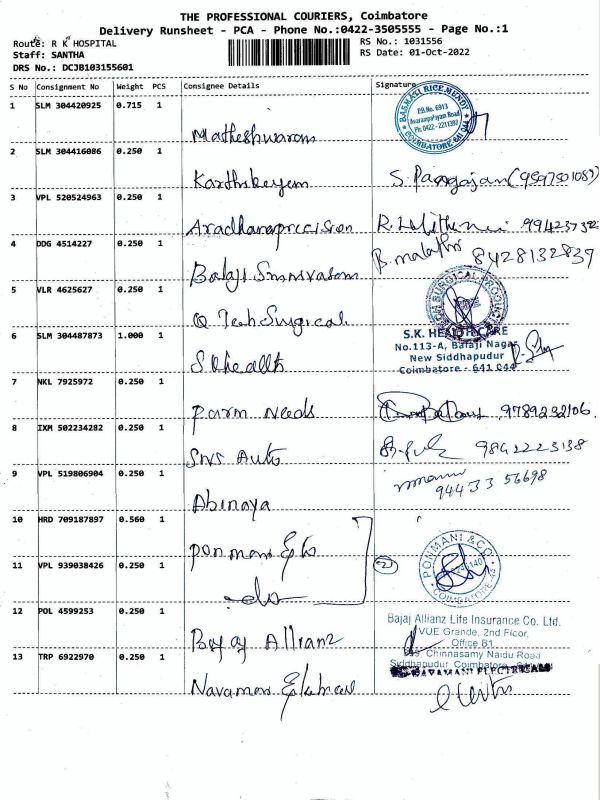 THE PROFESSIONAL COURIERS, Coimbatore
Delivery Runsheet - PCA - Phone No.:0422-3505555 - Page No.:1
Route: R K HOSPITAL RS No.: 1031556
Staff: SANTHA RS Date: 01-Oct-2022
DRS No.: DCJB103155601
S No Consignment No Weight PCS Consignee Details Signature
1 SLM 304420925 0.715 1
BASMATI RICE MENDY
P.B No. 6913
Avarampalayam Road
Ph: 0422 - 2211397
COIMBATORE 641 044
Matheshwaram
2 SLM 304416086 0.250 1
Karthikeyem S. Pangajan (9597501089)
3 VPL 520524963 0.250 1
Aradhanaprecision
4 DDG 4514227 0.250 1
Balaji Srinivasan B. malathi 8428132839
5 VLR 4625627 0.250 1
SURGICAL PRODUCTS
Q Tech Surgical
6 SLM 304487873 1.000 1
S.K. HEALTH CARE
No.113-A, Balaji Nagar
New Siddhapudur
Coimbatore - 641 044
S K health
7 NKL 7925972 0.250 1
parm needs 9789232106
8 IXM 502234282 0.250 1
SNS Auto 9892223138
9 VPL 519806904 0.250 1
94433 56698
Abinaya
10 HRD 709187897 0.560 1
ponmani
11 VPL 939038426 0.250 1
2
PONMANI & CO.
COIMBATORE-44
do
12 POL 4599253 0.250 1
Bajaj Allianz Life Insurance Co. Ltd.
VUE Grande, 2nd Floor,
Office B1,
Chinnasamy Naidu Road
Siddhapudur Coimbatore
Bajaj Allianz
13 TRP 6922970 0.250 1
NAVAMANI ELECTRICALS
Navamani